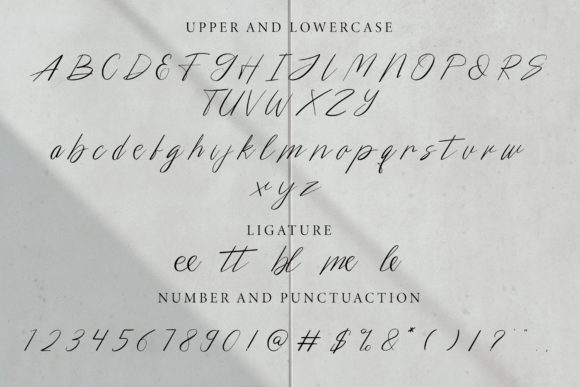 UPPER AND LOWERCASE
A B C D E F G H I J L K M N O P Q R S
T U V W X Z Y
a b c d e f g h i j k l m n o p q r s t u v w
x y z
LIGATURE
ee tt bl me le
NUMBER AND PUNCTUACTION
1 2 3 4 5 6 7 8 9 0 ! @ # $ % & * ( ) ! ? " " . .